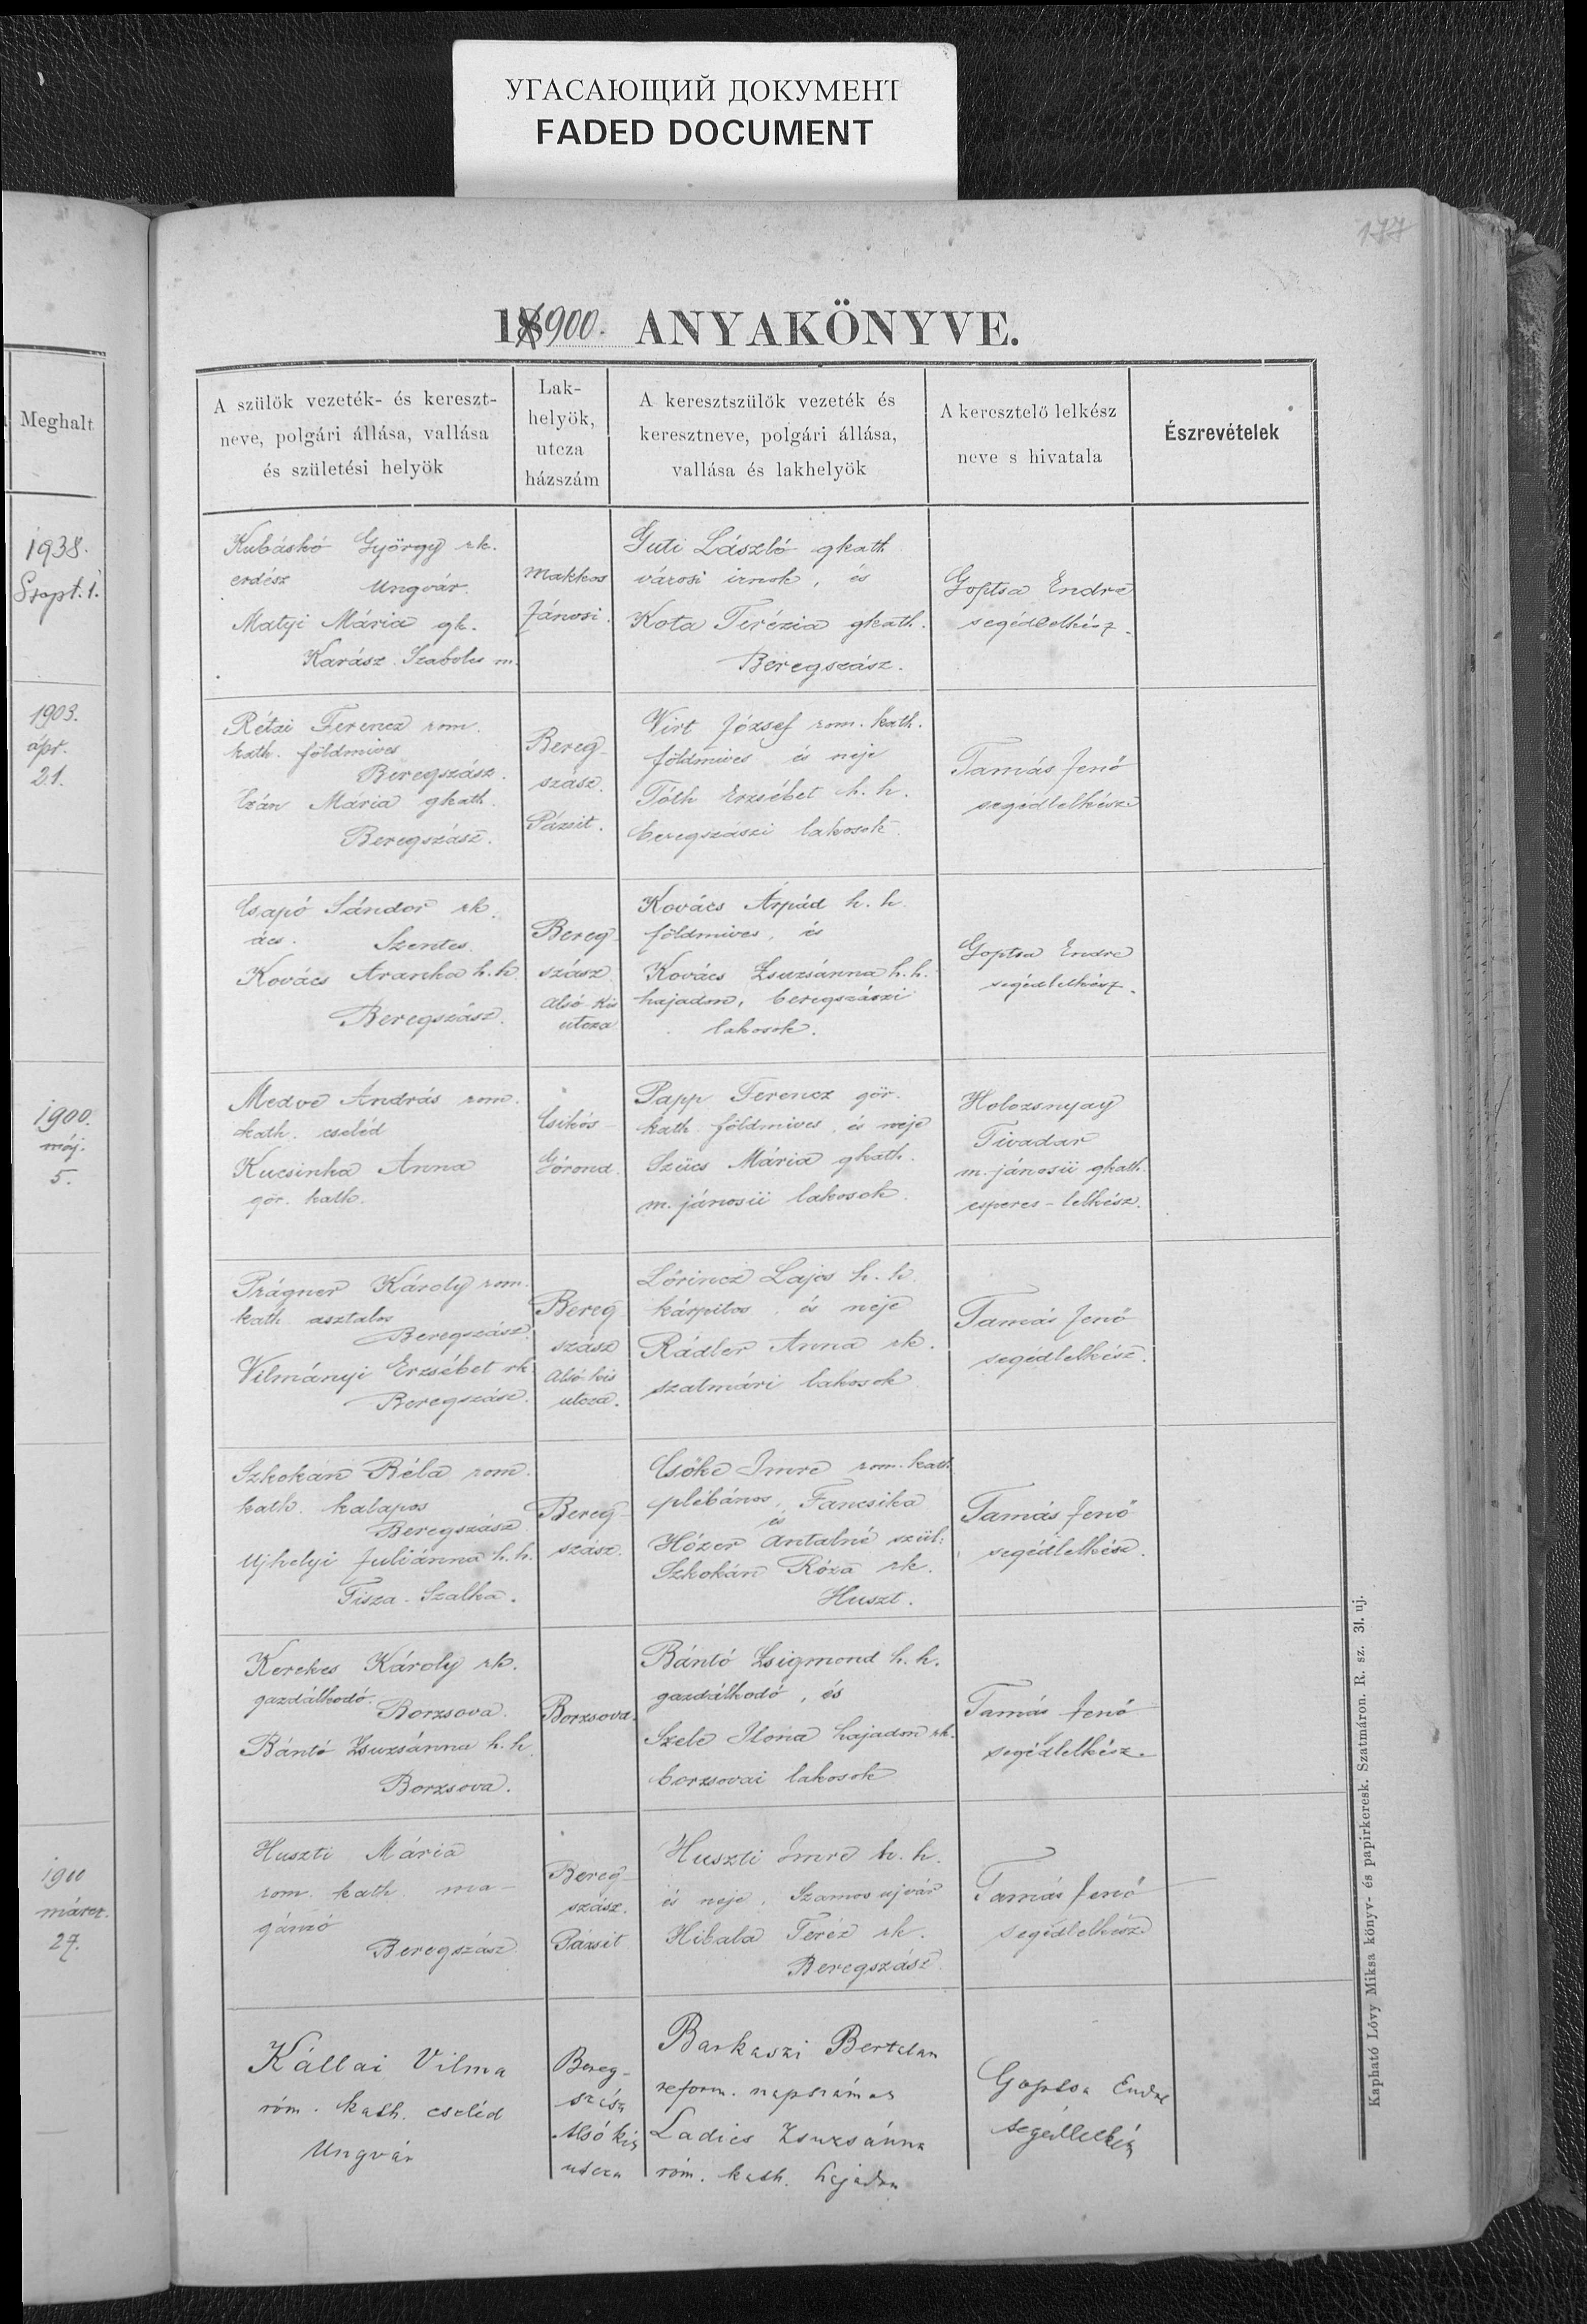 УГАСАЮЩИЙ ДОКУМЕНТ
FADED DOCUMENT
177
18900. ANYAKÖNYVE.
Meghalt
1938.
Szept. 1.
1903.
ápr.
21.
1900.
máj.
5.
1900
márcz.
27.
A szülök vezeték- és kereszt-
neve, polgári állása, vallása
és születési helyök
Lak-
helyök,
utcza
házszám
A keresztszülök vezeték és
keresztneve, polgári állása,
vallása és lakhelyök
A keresztelő lelkész
neve s hivatala
Észrevételek
Kubáskó György rk.
erdész Ungvár.
Matyi Mária gk.
Karász. Szabolcs m.
Makkos
Jánosi.
Guti László gkath.
városi irnok, és
Kota Terézia gkath.
Beregszász.
Goptsa Endre
segédlelkész.
Rétai Ferencz rom.
kath. földmives
Beregszász.
Czán Mária gkath.
Beregszász.
Bereg-
szász.
Pázsit.
Virt József rom. kath.
földmives és neje
Tóth Erzsébet h. h.
beregszászi lakosok.
Tamás Jenő
segédlelkész
Csapó Sándor rk.
ács. Szentes.
Kovács Aranka h. h.
Beregszász.
Bereg-
szász
Alsó kis
utcza
Kovács Árpád h. h.
földmives, és
Kovács Zsuzsánna h. h.
hajadon, beregszászi
lakosok.
Goptsa Endre
segédlelkész.
Medve András rom.
kath. cseléd
Kucsinka Anna
gör. kath.
Csikós-
Górond.
Papp Ferencz gör.
kath. földmives, és neje
Szücs Mária gkath.
m. jánosii lakosok.
Holozsnyay
Tivadar
m. jánosii gkath.
esperes-lelkész.
Prágner Károly rom.
kath. asztalos
Beregszász.
Vilmányi Erzsébet rk.
Beregszász.
Bereg
szász
Alsó kis
utcza.
Lőrincz Lajos h. h.
kárpitos és neje
Rádler Anna rk.
szatmári lakosok
Tamás Jenő
segédlelkész.
Szkokán Béla rom.
kath. kalapos
Beregszász
Ujhelyi Juliánna h. h.
Tisza-Szalka.
Bereg-
szász.
Csőke Imre rom. kath.
plébános, Fancsika
és
Hózer Antalné szül:
Szkokán Róza rk.
Huszt.
Tamás Jenő
segédlelkész.
Kerekes Károly rk.
gazdálkodó. Borzsova.
Bántó Zsuzsánna h. h.
Borzsova.
Borzsova.
Bántó Zsigmond h. h.
gazdálkodó, és
Szele Ilona hajadon rk.
borzsovai lakosok
Tamás Jenő
segédlelkész.
Huszti Mária
rom. kath. ma-
gánzó
Beregszász
Bereg-
szász.
Pázsit
Huszti Imre h. h.
és neje, Szamosujvár
Hibala Teréz rk.
Beregszász.
Tamás Jenő
segédlelkész
Kállai Vilma
róm. kath. cseléd
Ungvár
Bereg-
szász
Alsó kis
utcza
Barkaszi Bertalan
reform. napszámos
Ladics Zsuzsánna
róm. kath. hajadon
Goptsa Endre
segédlelkész
Kapható Lővy Miksa könyv- és papirkeresk. Szatmáron. R. sz. 31. uj.